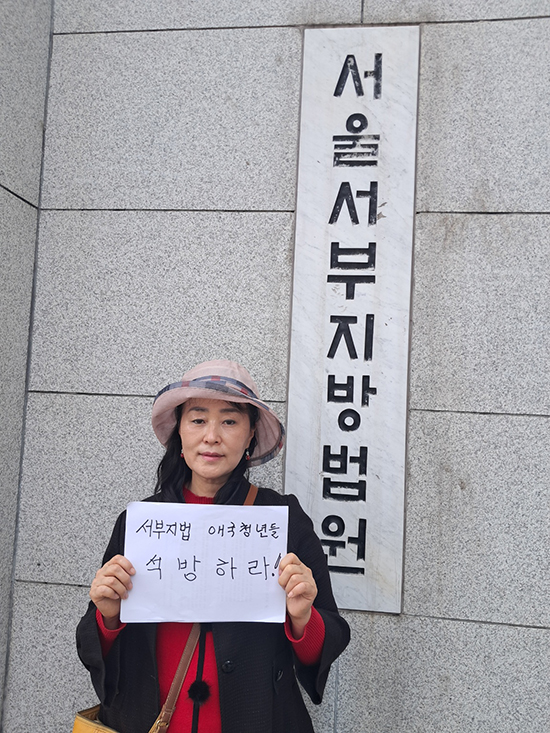 서울서부지방법원
서부지법 애국청년들
석방하라!